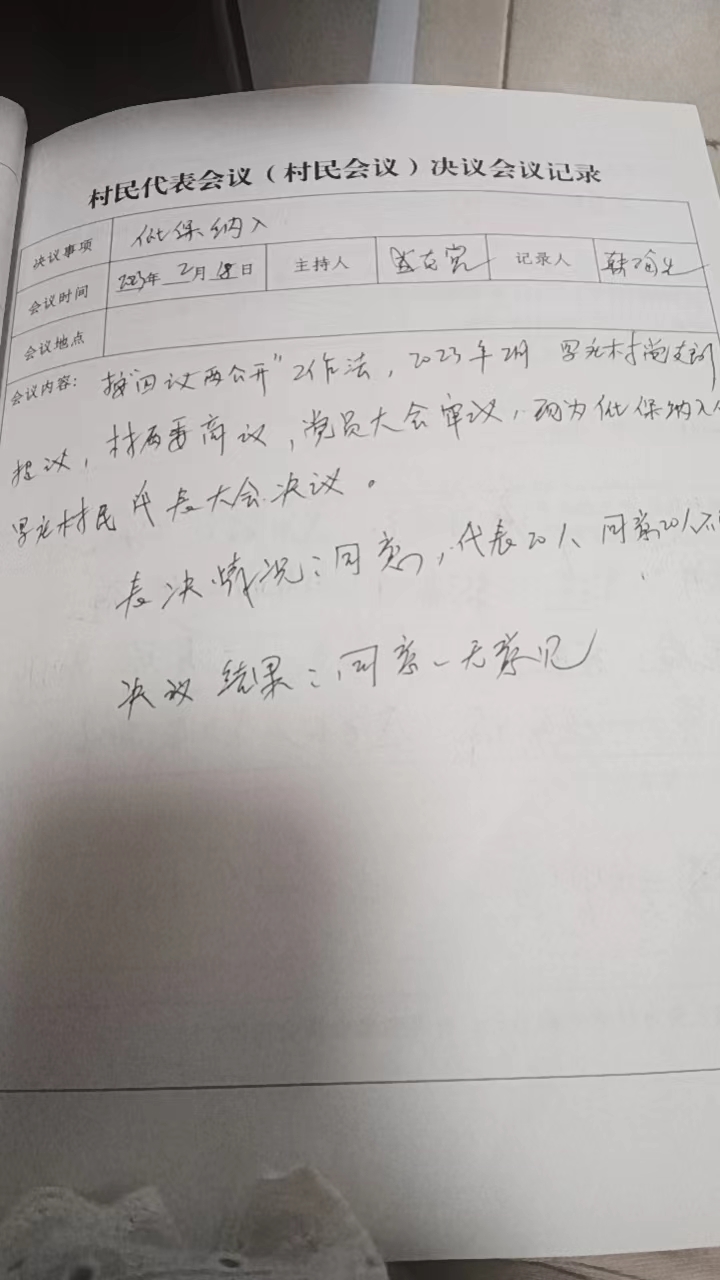 村民代表会议（村民会议）决议会议记录
决议事项 低保纳入
会议时间 2023年 2月 18日 主持人 记录人 韩
会议地点
会议内容：按"四议两公开"工作法，2023年2月 村党支部
提议，村两委商议，党员大会审议，现为低保纳入
村民代表大会决议。
表决情况：同意，代表20人、同意20人不
决议结果：同意一无意见